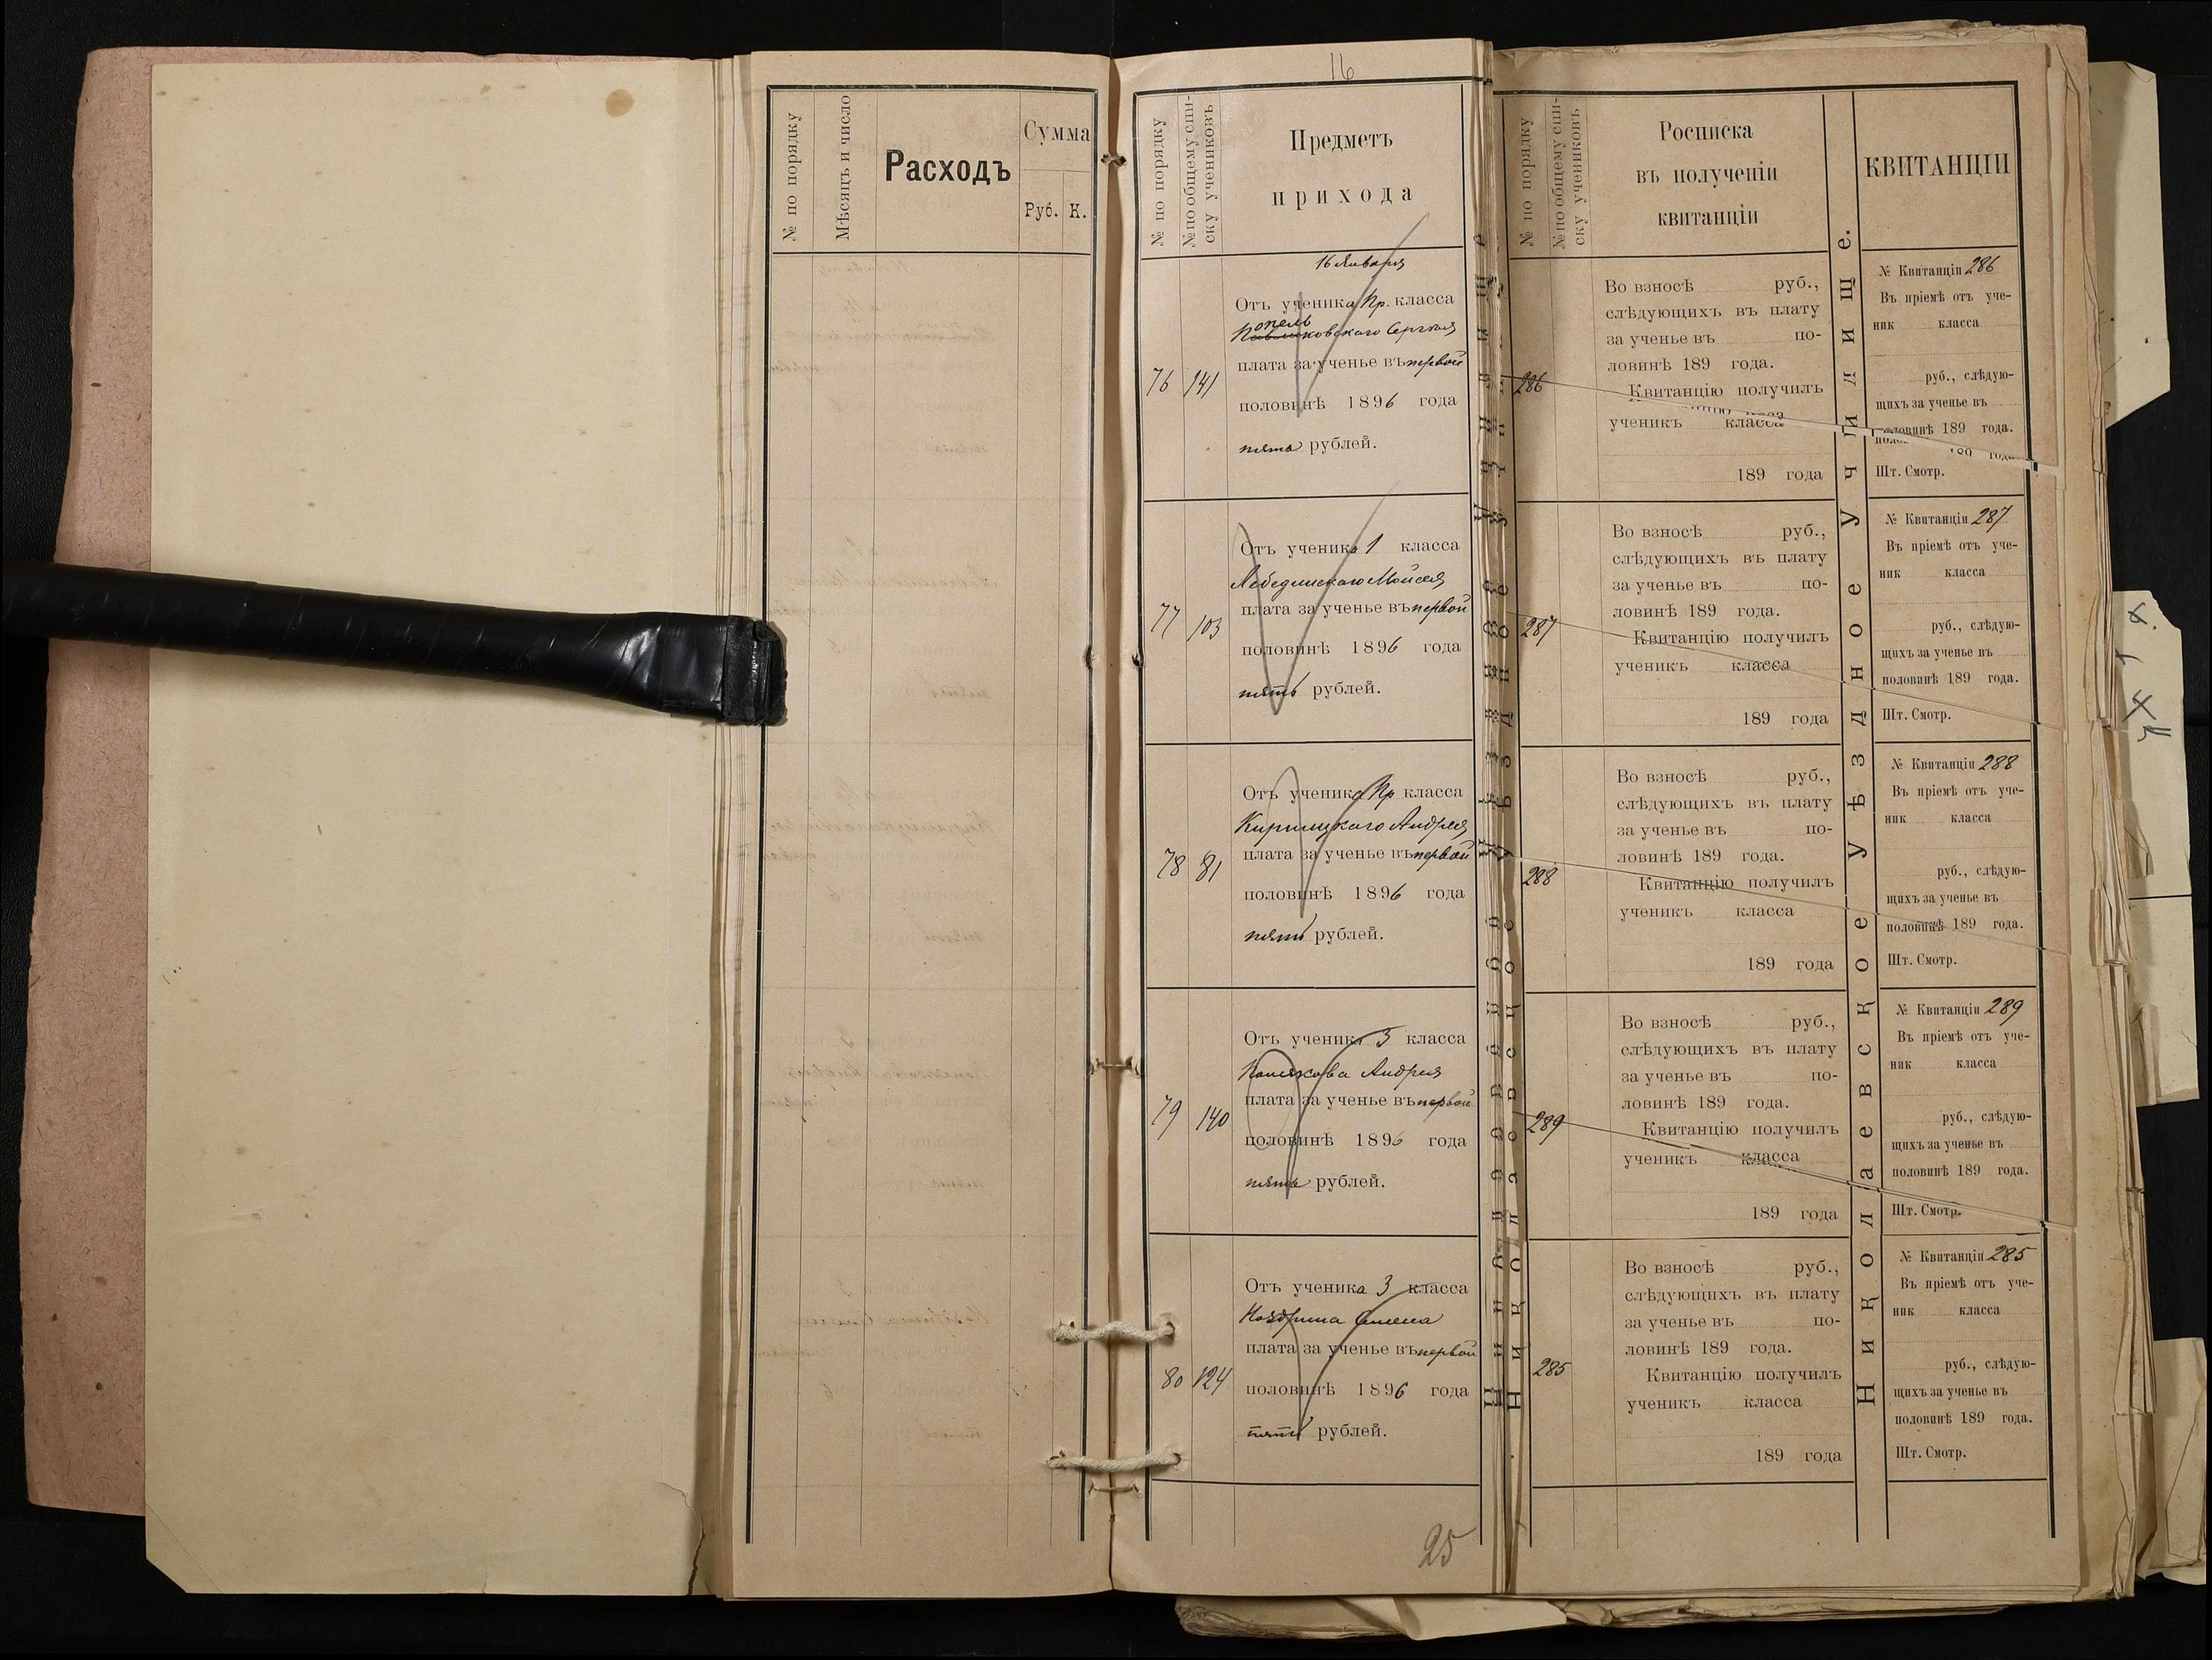 № по порядку
Мѣсяцъ и число
Расходъ
Сумма
Руб. К.
16
№ по порядку
№ по общему спи-
ску учениковъ
Предметъ
прихода
16 Января
76 141
Отъ ученика Пр. класса
Сергѣя
плата за ученье въ первой
половинѣ 1896 года
пять рублей.
77 103
Отъ ученика 1 класса
Лебединскаго Моисея
плата за ученье въ первой
половинѣ 1896 года
пять рублей.
78 81
Отъ ученика Пр класса
Кирилцкаго Андрея
плата за ученье въ первой
половинѣ 1896 года
пять рублей.
79 140
Отъ ученика 3 класса
Андрея
плата за ученье въ первой
половинѣ 1896 года
пять рублей.
80 124
Отъ ученика 3 класса
Ноздрина
плата за ученье въ первой
половинѣ 1896 года
пять рублей.
25
№ по порядку
№ по общему спи-
ску учениковъ
Росписка
въ полученіи
квитанціи
286
Во взносѣ руб.,
слѣдующихъ въ плату
за ученье въ по-
ловинѣ 189 года.
Квитанцію получилъ
ученикъ класса
189 года
287
Во взносѣ руб.,
слѣдующихъ въ плату
за ученье въ по-
ловинѣ 189 года.
Квитанцію получилъ
ученикъ класса
189 года
288
Во взносѣ руб.,
слѣдующихъ въ плату
за ученье въ по-
ловинѣ 189 года.
Квитанцію получилъ
ученикъ класса
189 года
289
Во взносѣ руб.,
слѣдующихъ въ плату
за ученье въ по-
ловинѣ 189 года.
Квитанцію получилъ
ученикъ класса
189 года
285
Во взносѣ руб.,
слѣдующихъ въ плату
за ученье въ по-
ловинѣ 189 года.
Квитанцію получилъ
ученикъ класса
189 года
Николаевское Уѣздное Училище.
КВИТАНЦІИ
№ Квитанціи 286
Въ пріемѣ отъ уче-
ник класса
руб., слѣдую-
щихъ за ученье въ
половинѣ 189 года.
Шт. Смотр.
№ Квитанціи 287
Въ пріемѣ отъ уче-
ник класса
руб., слѣдую-
щихъ за ученье въ
половинѣ 189 года.
Шт. Смотр.
№ Квитанціи 288
Въ пріемѣ отъ уче-
ник класса
руб., слѣдую-
щихъ за ученье въ
половинѣ 189 года.
Шт. Смотр.
№ Квитанціи 289
Въ пріемѣ отъ уче-
ник класса
руб., слѣдую-
щихъ за ученье въ
половинѣ 189 года.
Шт. Смотр.
№ Квитанціи 285
Въ пріемѣ отъ уче-
ник класса
руб., слѣдую-
щихъ за ученье въ
половинѣ 189 года.
Шт. Смотр.